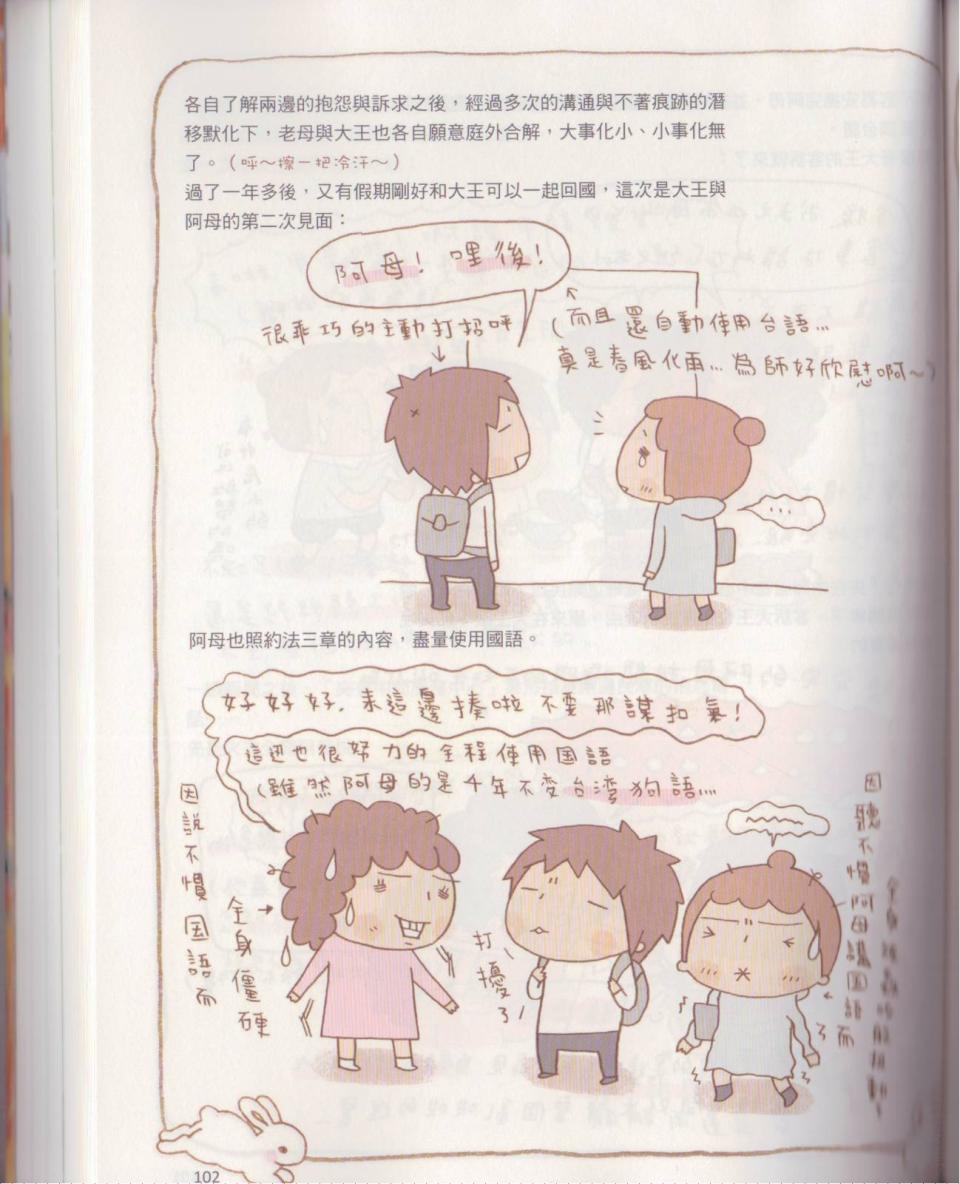 各自了解兩邊的抱怨與訴求之後，經過多次的溝通與不著痕跡的潛
移默化下，老母與大王也各自願意庭外合解，大事化小、小事化無
了。（呼～擦一把冷汗～）
過了一年多後，又有假期剛好和大王可以一起回國，這次是大王與
阿母的第二次見面：
阿母！哩後！
很乖巧的主動打招呼
（而且還自動使用台語…
真是春風化雨…為師好欣慰啊～）
...
阿母也照約法三章的內容，盡量使用國語。
好好好，來這邊揍啦 不要那謀扣氣！
這边也很努力的全程使用国語
（雖然阿母的是千年不变台湾狗語…
因説不慣国語而
全身僵硬
打擾了
因聽不慣阿母講国語而
全身
102